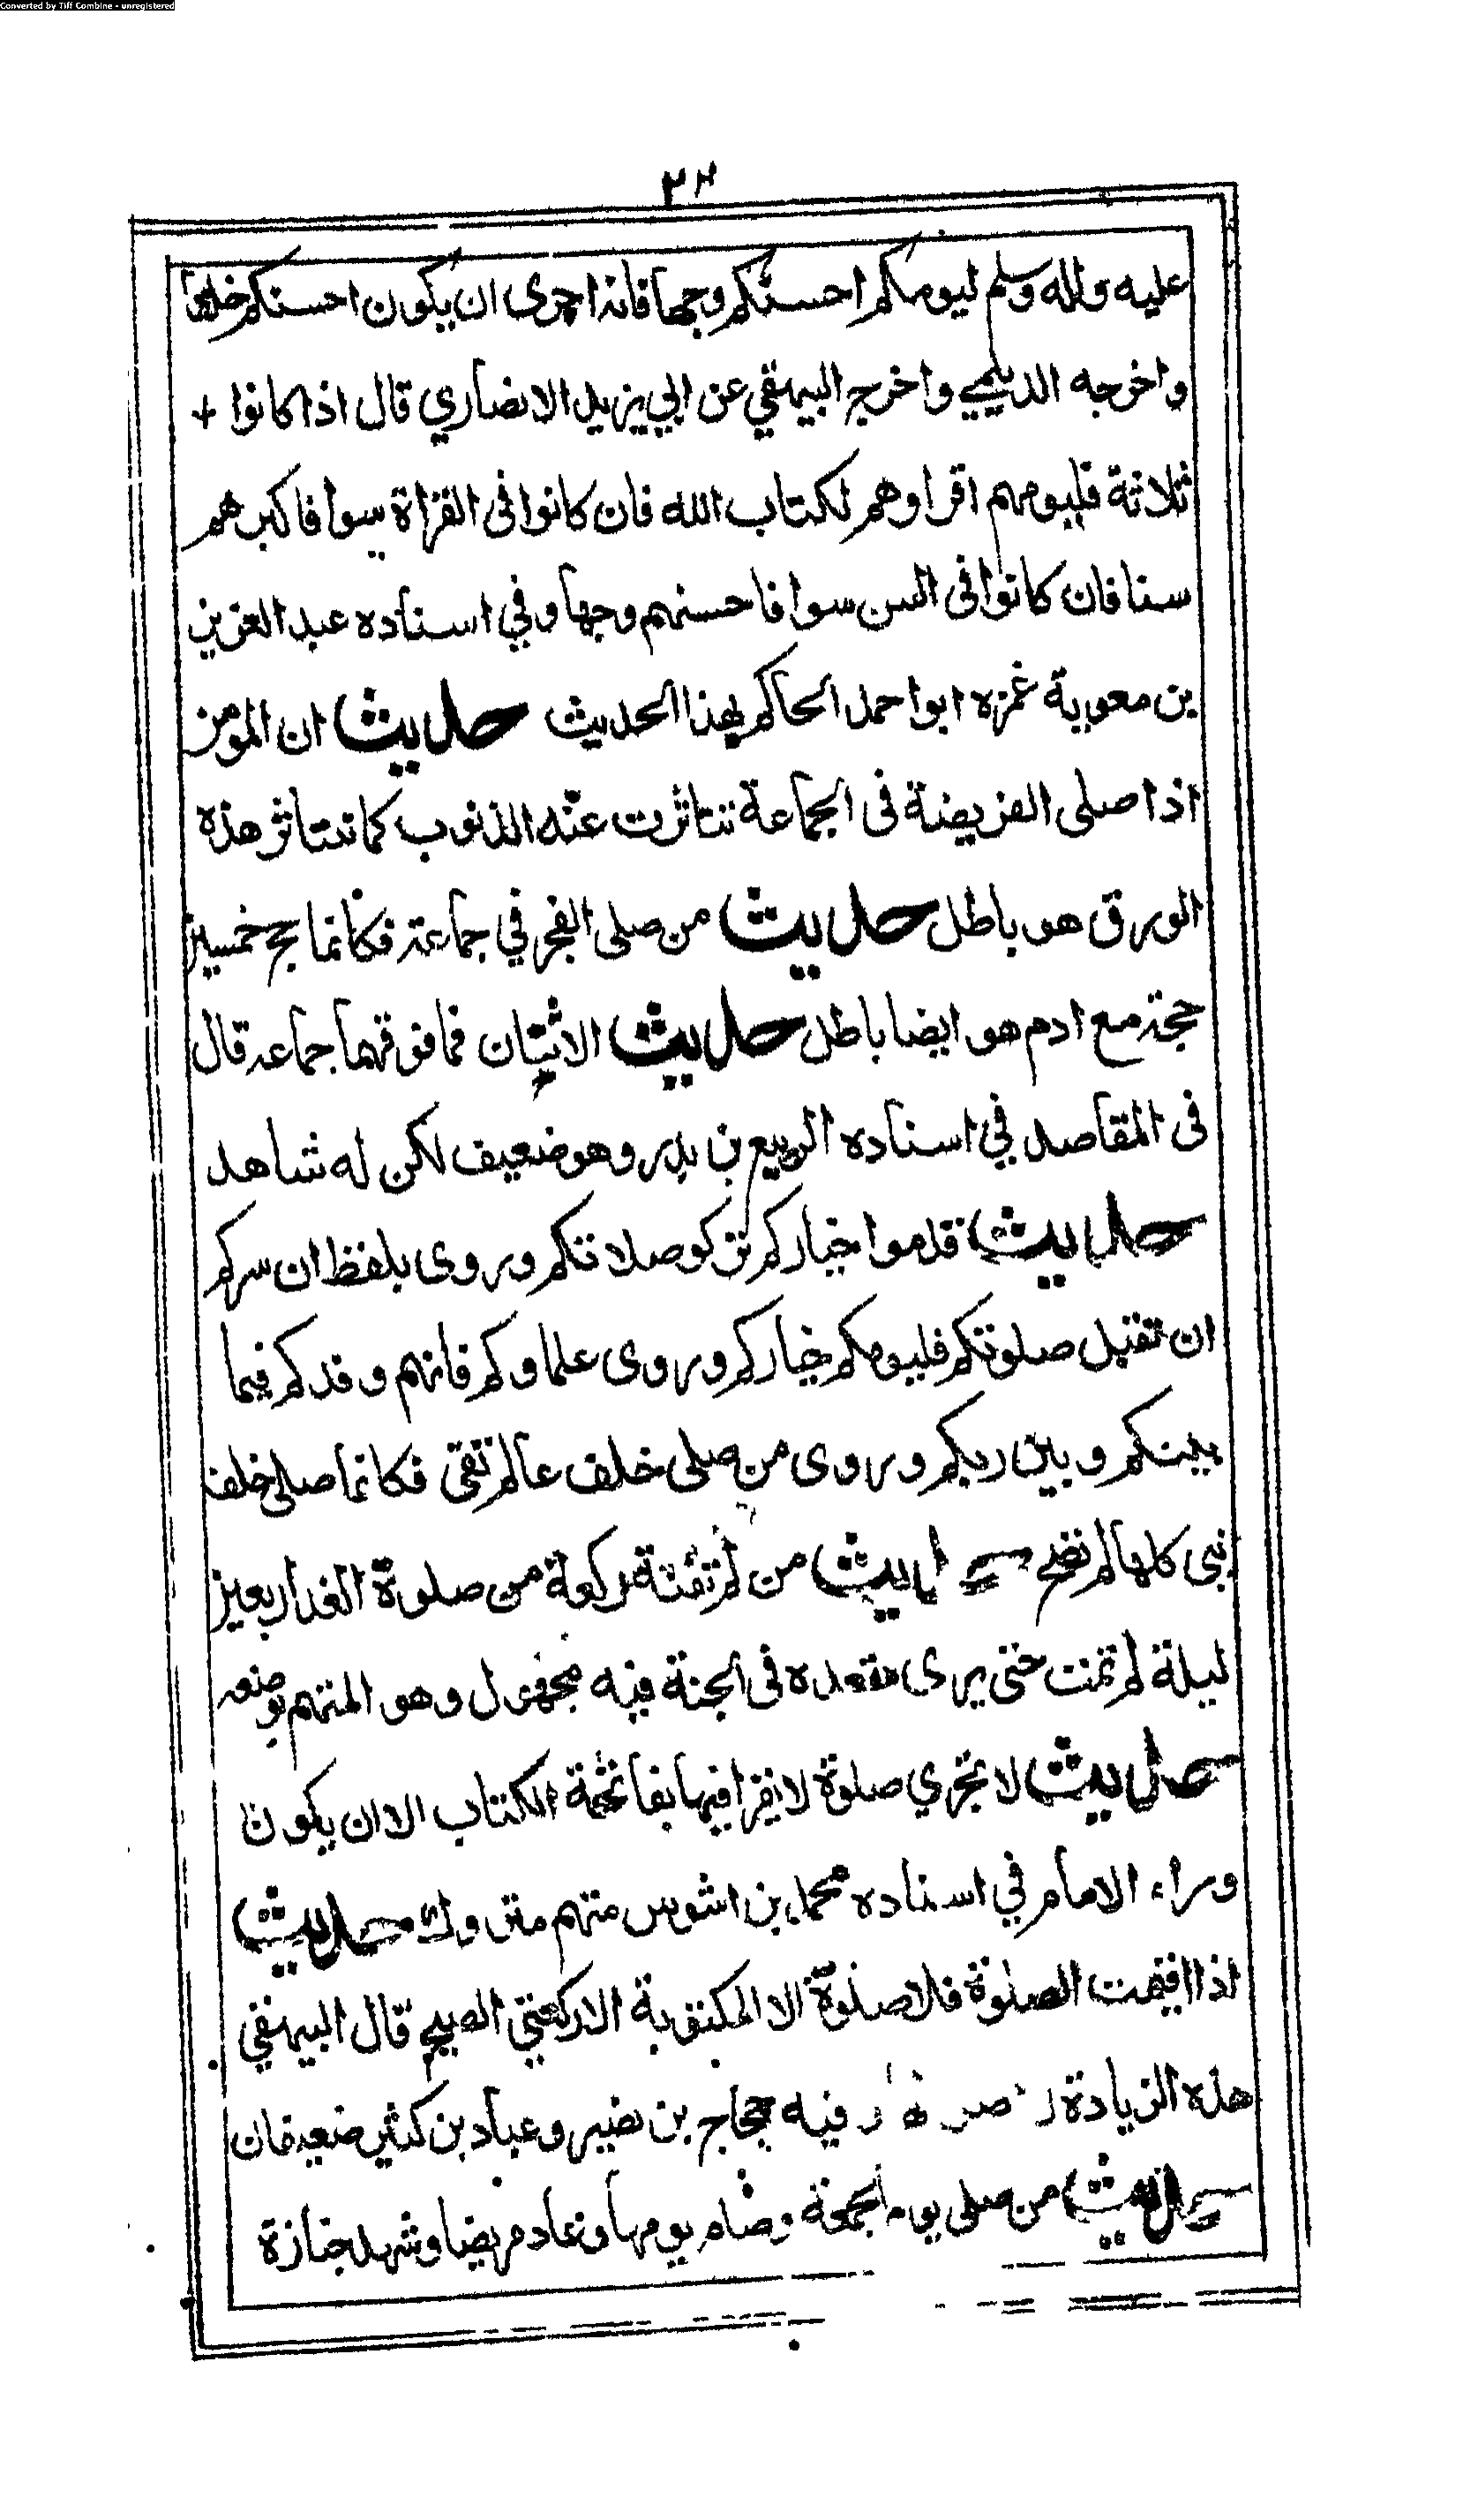 Converted by Tiff Combine - unregistered
٢٣
عليه واله وسلم ليومكم احسنكم وجها فانه احرى ان يكون احسنكم خلقا
واخرجه الديلمي واخرج البيهقي عن ابي يزيد الانصاري قال اذا كانوا +
ثلاثة فليومهم اقراوهم لكتاب الله فان كانوا فى القراة سوا فاكبرهم
سنا فان كانوا فى السن سوا فاحسنهم وجها وفي اسناده عبد العزيز
بن معوية غمزه ابو احمد الحاكم بهذا الحديث حديث ان المومن
اذا صلى الفريضة فى الجماعة تناثرت عنه الذنوب كما تتناثر هذه
الورق هو باطل حديث من صلى الفجر في جماعة فكانما حج خمسين
حجة مع ادم هو ايضا باطل حديث الاثنان فما فوقهما جماعة قال
فى المقاصد في اسناده الربيع بن بدر وهو ضعيف لكن له شاهد
حديث قدموا خياركم تزكو صلاتكم وروى بلفظ ان سركم
ان تقبل صلوتكم فليومكم خياركم وروى علماوكم فانهم وفدكم فيما
بينكم وبين ربكم وروى من صلى خلف عالم تقى فكانما صلى خلف
نبى كلها لم تصح حديث من لم تفته ركعة من صلوة الغداة اربعين
ليلة لم تمت حتى يرى مقعده فى الجنة فيه مجهول وهو المتهم بوضعه
حديث لا تجزي صلوة لا يقرا فيها بفاتحة الكتاب الا ان يكون
وراء الامام في اسناده محمد بن اشوس متهم متروك حديث
اذا اقيمت الصلوة فلا صلوة الا المكتوبة الا ركعتي الصبح قال البيهقي
هذه الزيادة فيه حجاج بن نصير وعباد بن كثير ضعيفان
حديث من صلى يوم الجمعة وصام يومها وعاد مريضا وشهد جنازة